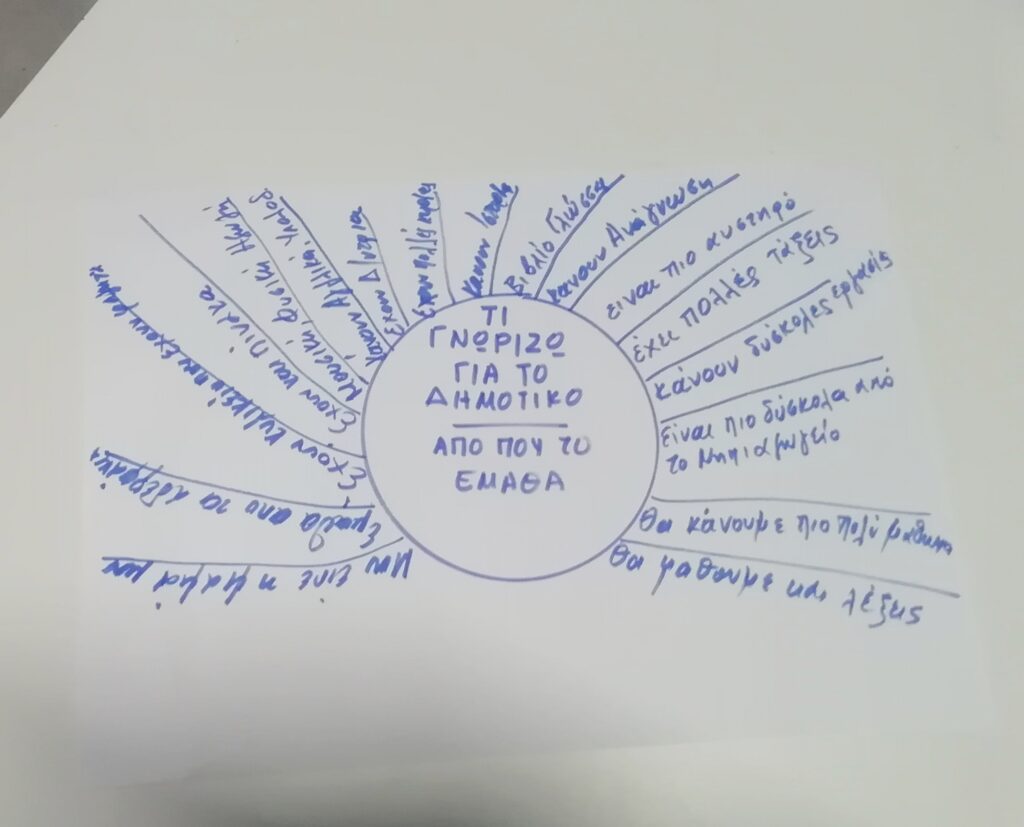 ΤΙ
ΓΝΩΡΙΖΩ
ΓΙΑ ΤΟ
ΔΗΜΟΤΙΚΟ
ΑΠΟ ΠΟΥ ΤΟ
ΕΜΑΘΑ
Μου είπε η μαμά μου
Έμαθα από τα
Έχουν που έχουν
Έχουν και πίνακα
Μουσική, Φυσική Αγωγή
Κάνουν Αγγλικά,
Έχουν
Έχουν πολλές
Κάνουν Ιστορία
Βιβλίο Γλώσσα
κάνουν Ανάγνωση
είναι πιο αυστηρό
έχει πολλές τάξεις
κάνουν δύσκολες εργασίες
είναι πιο δύσκολα από
το Νηπιαγωγείο
Θα κάνουμε πιο πολύ μάθημα
Θα μαθουμε και λέξεις